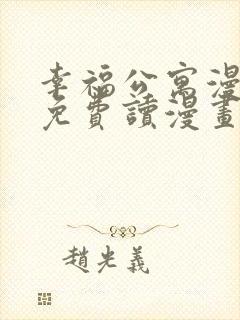 幸福公寓漫
免費讀漫畫
趙光義